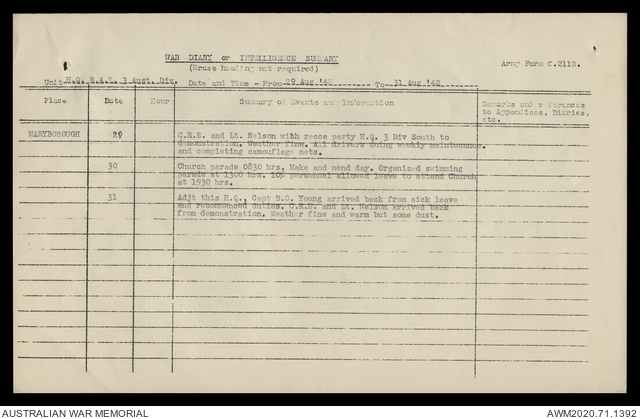 WAR DIARY or INTELLIGENCE SUMMARY
(Erase heading not required)
Army Form C.2118.
Unit H.Q. R.A.E. 3 Aust. Div. Date and Time - From 29 Aug '42 To 31 Aug '42
Place Date Hour Summary of Events and Information Remarks and references
to Appendices, Diaries,
etc.
MARYBOROUGH 29 C.R.E. and Lt. Nelson wihh recce party H.Q. 3 Div South to
demonstration. Weather fine. All drivers doing weekly maintenance
and completing camouflage nets.
30 Church parade 0830 hrs. Make and mend day. Organized swimming
parade at 1300 hrs. 10% personnel allowed leave to attend Church
at 1930 hrs.
31 Adjt this H.Q., Capt B.O. Young arrived back from sick leave
and recommenced duties. C.R.E. and Lt. Nelson arrived back
from demonstration. Weather fine and warm but some dust.
AUSTRALIAN WAR MEMORIAL AWM2020.71.1392